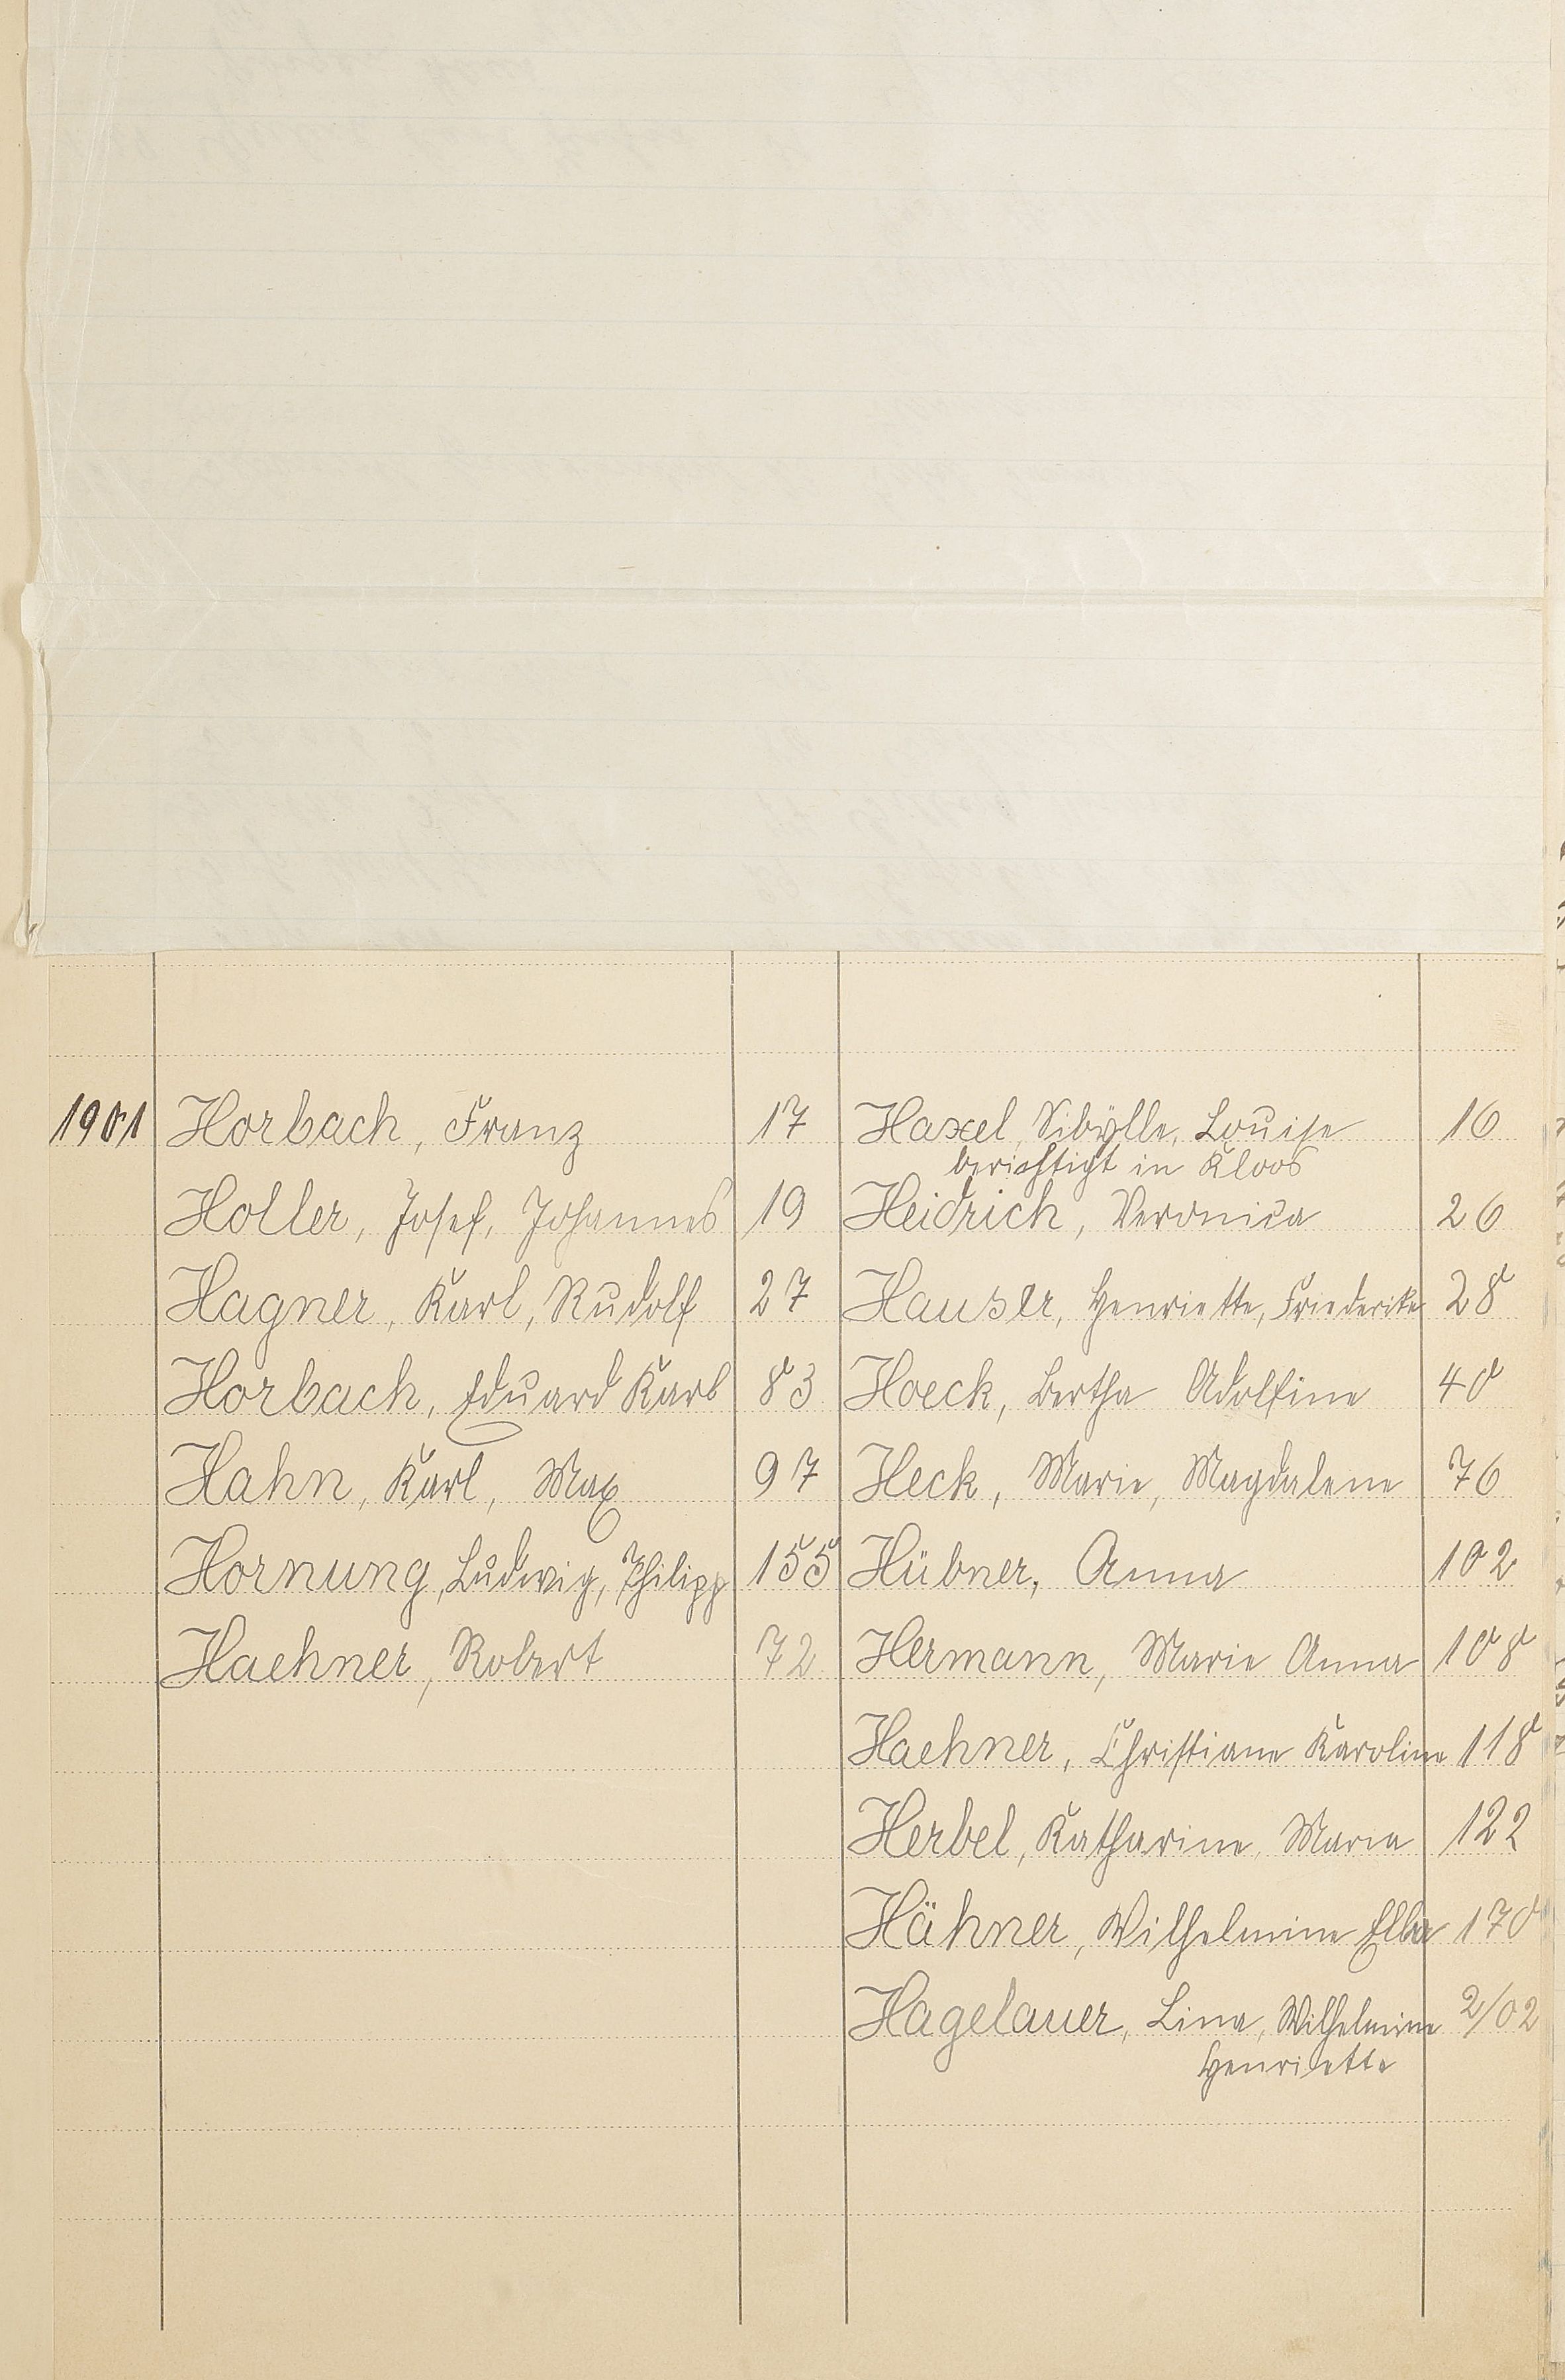 1901 Horbach, Franz 17 Haxel, Sibÿlle, Louise 16
berichtigt in Kloos
Holler, Josef, Johannes 19 Heidrich, Veronica 26
Hagner, Karl, Rudolf 27 Hauser, Henriette, Friederike 28
Horbach, Eduard Karl 83 Hoeck, Bertha Adolfine 40
Hahn, Karl, Max 97 Heck, Marie, Magdalene 76
Hornung, Ludwig, Philipp 155 Hübner, Anna 102
Haehner, Robert 72 Hermann, Marie Anna 108
Haehner, Christiane Karoline 118
Herbel, Katharine, Maria 122
Hähner, Wilhelmine 170
Hagelauer, Lina, Wilhelmine 2/02
Henriette